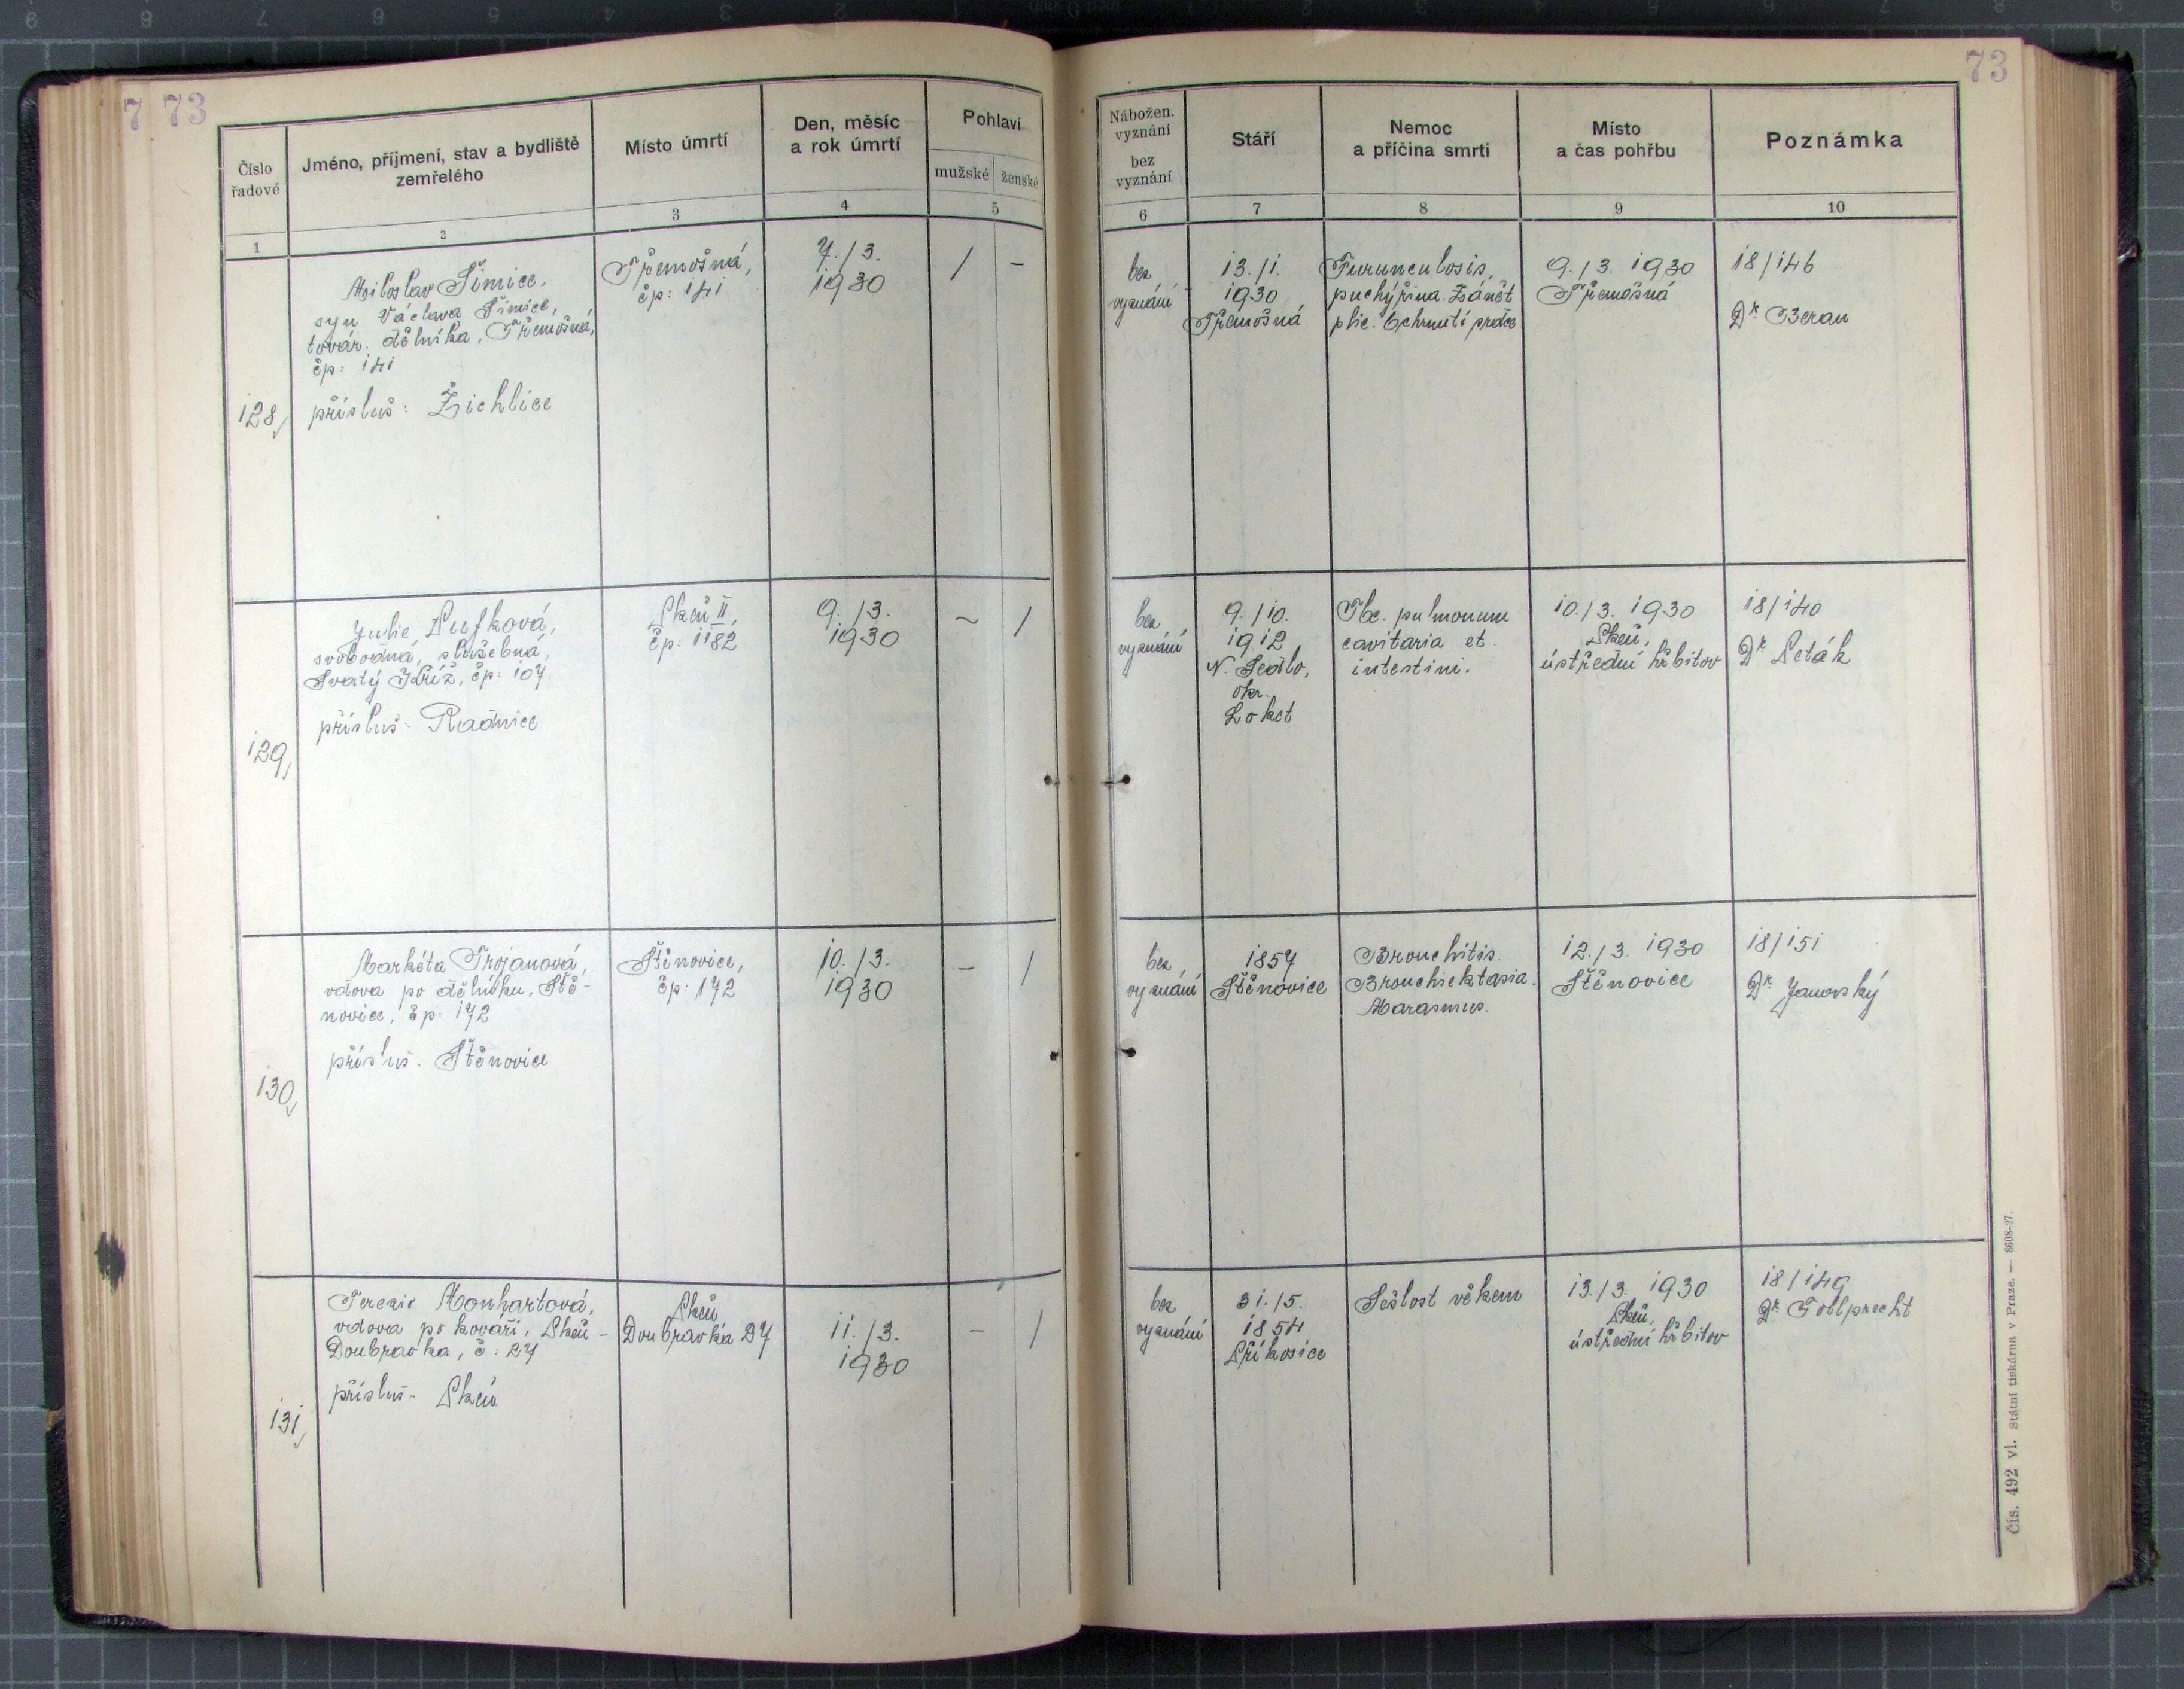 7 73
73
Číslo
řadové
Jméno, příjmení, stav a bydliště
zemřelého
Místo úmrtí
Den, měsíc
a rok úmrtí
Pohlaví
mužské
ženské
Nábožen.
vyznání
bez
vyznání
Stáří
Nemoc
a příčina smrti
Místo
a čas pohřbu
Poznámka
1
2
3
4
5
6
7
8
9
10
128,
Miloslav Šimice,
syn Václava Šimice,
továr. dělníka, Třemošná,
čp: 141
přísluš: Žichlice
Třemošná,
čp: 141
7./3.
1930
/ –
bez
vyznání
13./1.
1930
Třemošná
Furunculosis,
puchýřina. Zánět
plic. Ochrnutí srdce
9./3. 1930
Třemošná
18/146
Dr. Beran
129,
Julie Lufková,
svobodná, služebná,
Svatý Kříž, čp: 107.
přísluš: Radnice
Plzeň II,
čp: 1182
9./3.
1930
~ /
bez
vyznání
9./10.
1912
N. Sedlo,
okr.
Loket
Tbc. pulmonum
cavitaria et
intestini.
10./3. 1930
Plzeň,
ústřední hřbitov
18/140
Dr. Leták
130,
Markéta Trojanová,
vdova po dělníku, Ště-
novice, čp: 172
přísluš. Štěnovice
Štěnovice,
čp: 172
10./3.
1930
– /
bez
vyznání
1857
Štěnovice
Bronchitis.
Bronchiektasia.
Marasmus.
12./3. 1930
Štěnovice
18/151
Dr. Janovský
131,
Terezie Monhartová,
vdova po kováři, Plzeň -
Doubravka, č: 27
přísluš- Plzeň
Plzeň
Doubravka 27
11./3.
1930
– /
bez
vyznání
31./5.
1854
Příkosice
Sešlost věkem
13./3. 1930
Plzeň,
ústřední hřbitov
18/149
Čís. 492 vl. Státní tiskárna v Praze. — 8608-27.